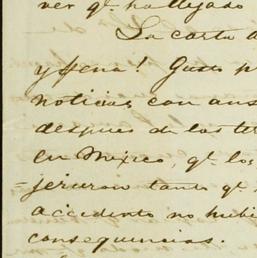 ver q.e ha llejado
La carta d
y Hena! Gusto p
noticias con ans
despues de los te
en Mexico, q.e los
jeruron tanto q.e
accidente no hubi
consequencias.